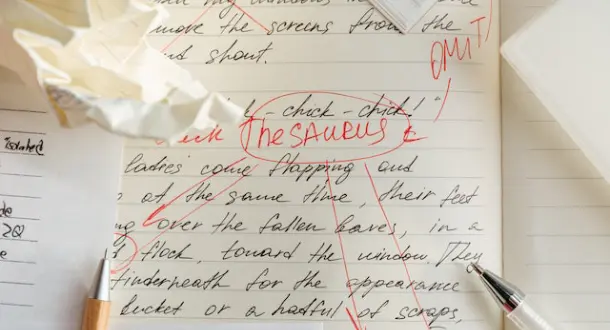 move the screens from the
shout.
OMIT
- chick - chick! "
THESAURUS
ladies come flapping and
at the same time, their feet
over the fallen leaves, in a
flock, toward the window. They
underneath for the appearance
bucket or a hatful of scraps,